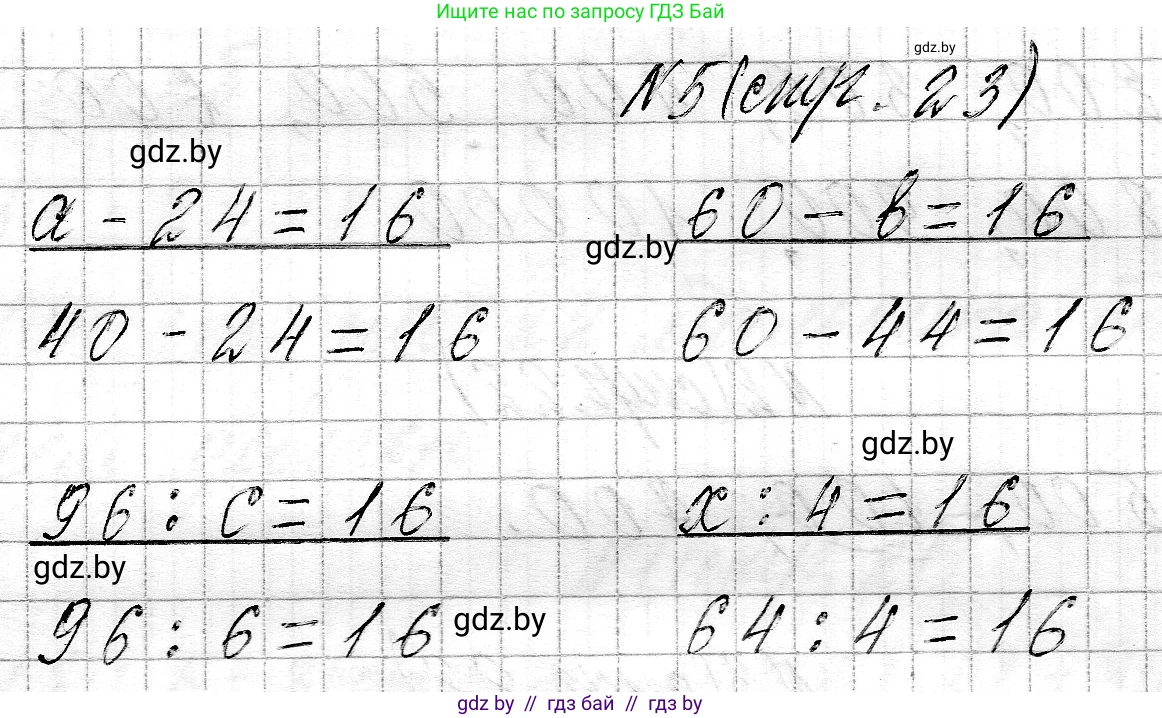 Ищите нас по запросу ГДЗ Бай
gdz.by
N5 (стр. 23)
gdz.by
a - 24 = 16
60 - b = 16
gdz.by
40 - 24 = 16
60 - 44 = 16
gdz.by
96 : c = 16
x : 4 = 16
gdz.by
96 : 6 = 16
gdz.by
64 : 4 = 16
gdz.by // гдз бай // гдз by